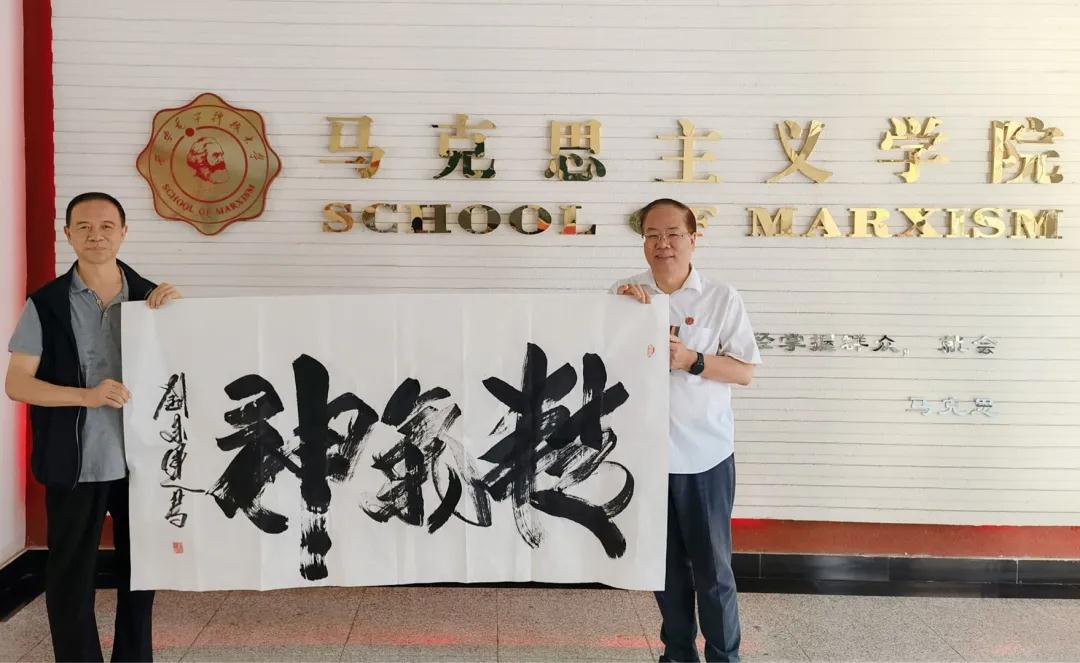 马克思主义学院
SCHOOL OF MARXISM
SCHOOL OF MARXISM
经掌握群众，就会
马克思
精氣神
劉